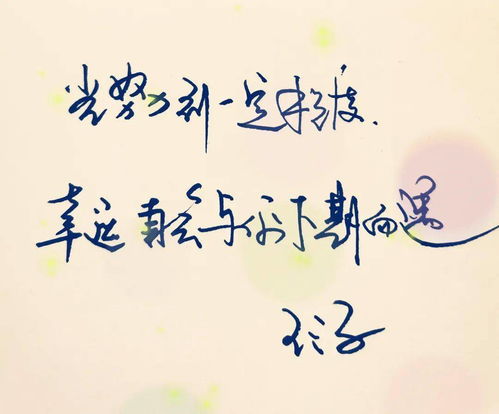 当努力到一定程度.
幸运自会与你不期而遇